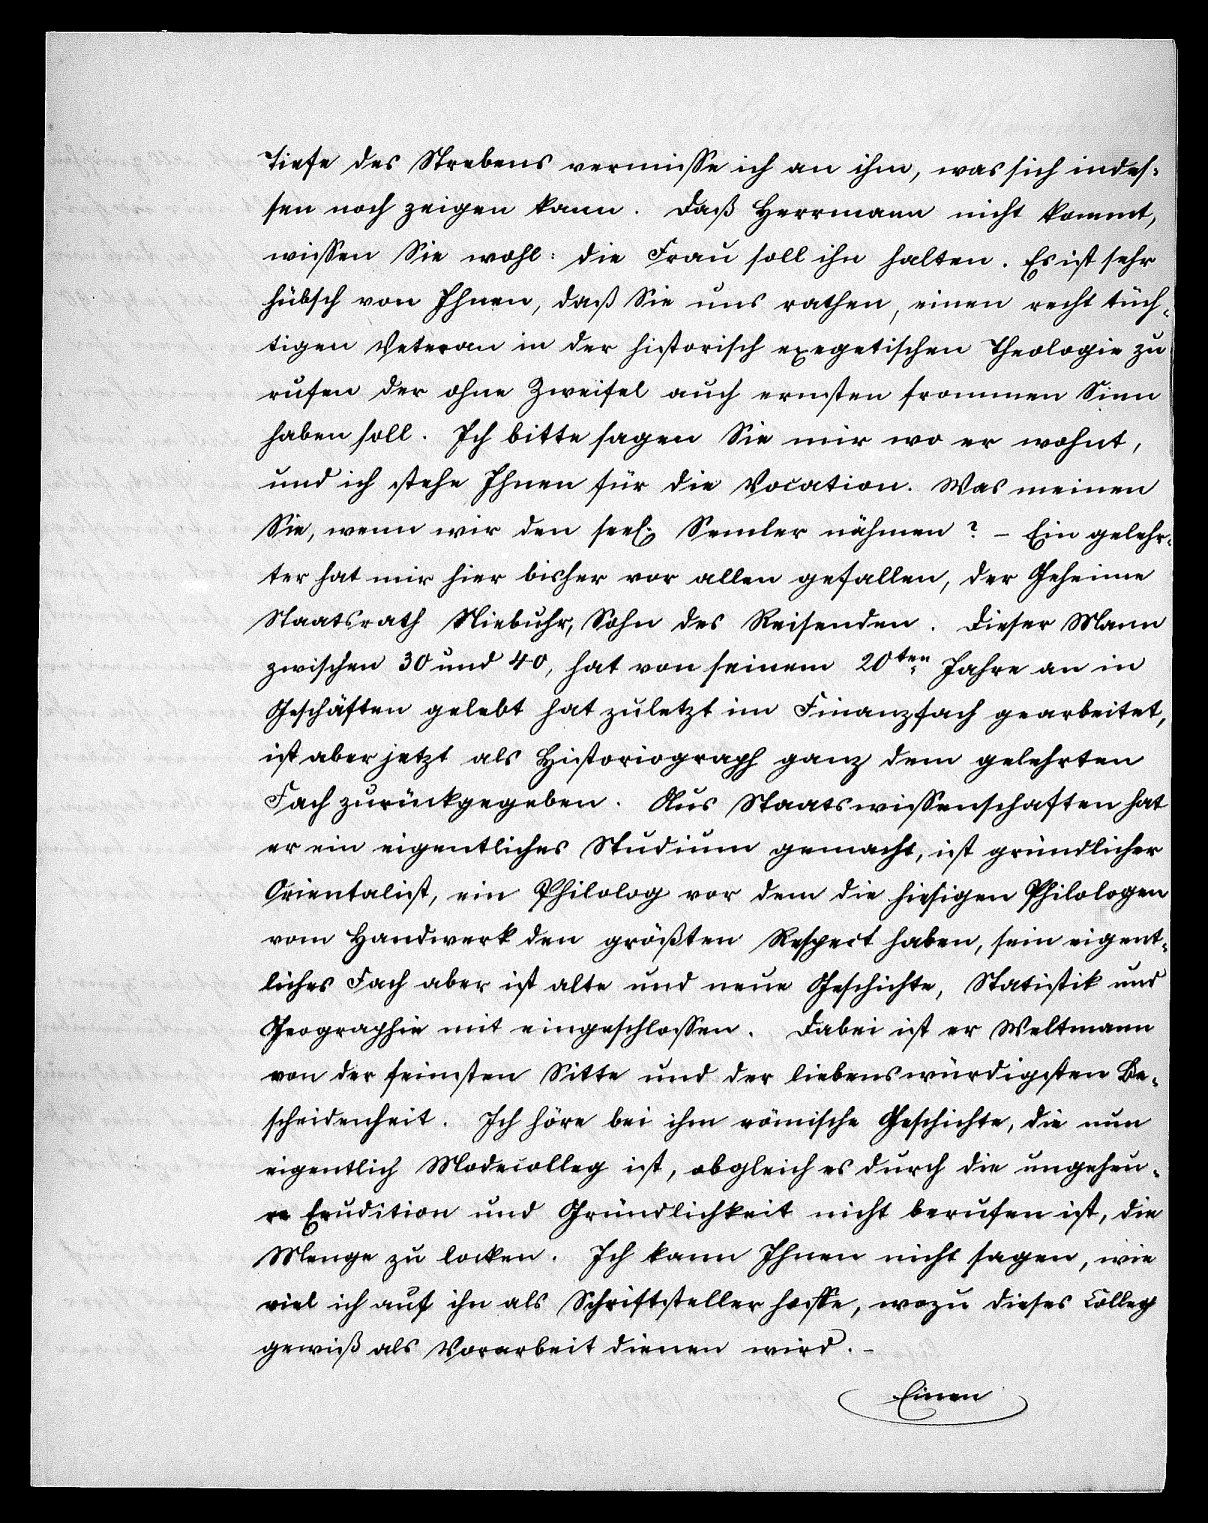 Tiefe des Strebens vermisse ich an ihm, was sich indes-
sen noch zeigen kann. Daß Herrmann nicht kommt,
wissen Sie wohl: die Frau soll ihn halten. Es ist sehr
hübsch von Ihnen, daß Sie uns rathen, einen recht tüch-
tigen Veteran in der historisch exegetischen Theologie zu
rufen der ohne Zweifel auch ernsten frommen Sinn
haben soll. Ich bitte sagen Sie mir wo er wohnt,
und ich stehe Ihnen für die Vocation. Was meinen
Sie, wenn wir den seel. Semler nähmen? – Ein gelehr-
ter hat mir hier bisher vor allen gefallen, der Geheime
Staatsrath Niebuhr, Sohn des Reisenden. Dieser Mann
zwischen 30 und 40, hat von seinem 20ten Jahre an in
Geschäften gelebt hat zuletzt im Finanzfach gearbeitet,
ist aber jetzt als Historiograph ganz dem gelehrten
Fach zurückgegeben. Aus Staatswissenschaften hat
er ein eigentliches Studium gemacht, ist gründlicher
Orientalist, ein Philolog vor dem die hiesigen Philologen
vom Handwerk den größten Respect haben, sein eigent-
liches Fach aber ist alte und neue Geschichte, Statistik und
Geographie mit eingeschlossen. Dabei ist er Weltmann
von der feinsten Sitte und der liebenswürdigsten Be-
scheidenheit. Ich höre bei ihm römische Geschichte, die nun
eigentlich Modecolleg ist, obgleich es durch die ungeheu-
re Erudition und Gründlichkeit nicht berufen ist, die
Menge zu locken. Ich kann Ihnen nicht sagen, wie
viel ich auf ihn als Schriftsteller hoffe, wozu dieses Colleg
gewiß als Vorarbeit dienen wird. –
Einen